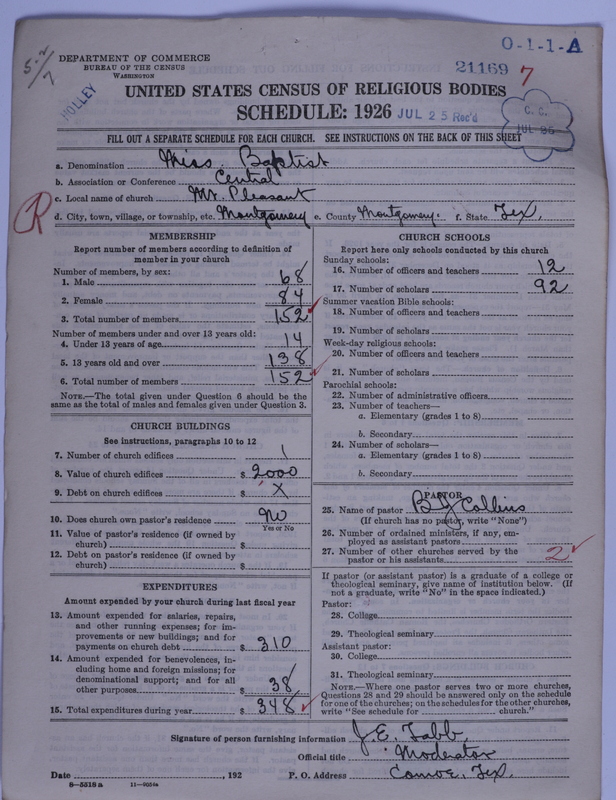 O-1-1-A
5-2/7
DEPARTMENT OF COMMERCE
BUREAU OF THE CENSUS
WASHINGTON
HOLLEY
21169 7
UNITED STATES CENSUS OF RELIGIOUS BODIES
SCHEDULE: 1926 JUL 25 Rec'd
C. C.
JUL 26
FILL OUT A SEPARATE SCHEDULE FOR EACH CHURCH. SEE INSTRUCTIONS ON THE BACK OF THIS SHEET
a. Denomination Miss. Baptist
b. Association or Conference Central
c. Local name of church Mt. Pleasant
R
d. City, town, village, or township, etc. Montgomery e. County Montgomery. f. State Tex.
MEMBERSHIP
Report number of members according to definition of
member in your church
Number of members, by sex:
1. Male 68
2. Female 84
3. Total number of members 152
Number of members under and over 13 years old:
4. Under 13 years of age 14
5. 13 years old and over 138
6. Total number of members 152
NOTE.—The total given under Question 6 should be
same as the total of males and females given under Question 3.
CHURCH BUILDINGS
See instructions, paragraphs 10 to 12
7. Number of church edifices 1
8. Value of church edifices $ 2000
9. Debt on church edifices $ X
10. Does church own pastor's residence No
Yes or No
11. Value of pastor's residence (if owned by
church) $
12. Debt on pastor's residence (if owned by
church) $
EXPENDITURES
Amount expended by your church during last fiscal year
13. Amount expended for salaries, repairs,
and other running expenses; for im-
provements or new buildings; and for
payments on church debt $ 310
14. Amount expended for benevolences, in-
cluding home and foreign missions; for
denominational support; and for all
other purposes $ 38
15. Total expenditures during year $ 348
CHURCH SCHOOLS
Report here only schools conducted by this church
Sunday schools:
16. Number of officers and teachers 12
17. Number of scholars 92
Summer vacation Bible schools:
18. Number of officers and teachers
19. Number of scholars
Week-day religious schools:
20. Number of officers and teachers
21. Number of scholars
Parochial schools:
22. Number of administrative officers
23. Number of teachers—
a. Elementary (grades 1 to 8)
b. Secondary
24. Number of scholars—
a. Elementary (grades 1 to 8)
b. Secondary
PASTOR
25. Name of pastor B J Collins
(If church has no pastor, write "None")
26. Number of ordained ministers, if any, em-
ployed as assistant pastors
27. Number of other churches served by the
pastor or his assistants 2
If pastor (or assistant pastor) is a graduate of a college or
theological seminary, give name of institution below. (If
not a graduate, write "No" in the space indicated.)
Pastor:
28. College
29. Theological seminary
Assistant pastor:
30. College
31. Theological seminary
NOTE.—Where one pastor serves two or more churches,
Questions 28 and 29 should be answered only on the schedule
for one of the churches; on the schedules for the other churches,
write "See schedule for church."
Signature of person furnishing information J. E. Tabb
Official title Moderator
Date , 192 P. O. Address Conroe, Tex.
8-5518 a 11-9054a